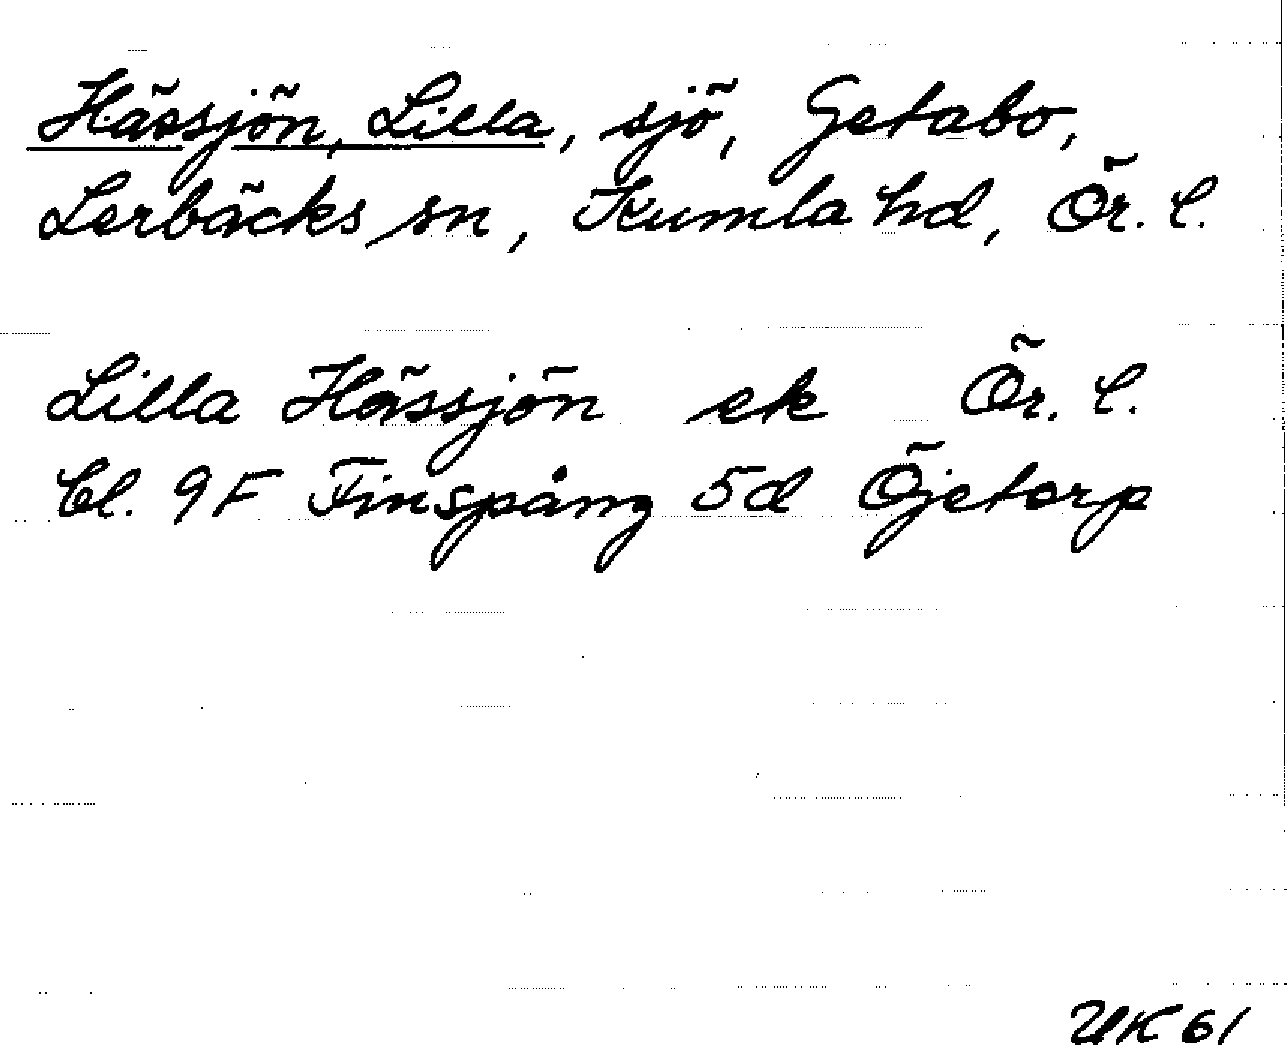 Hässjön, Lilla, sjö, Getabo,
Lerbäcks sn, Kumla hd, Ör. l.
Lilla Hässjön ek Ör. l.
bl. 9F Finspång 5d Öjetorp
UK 61